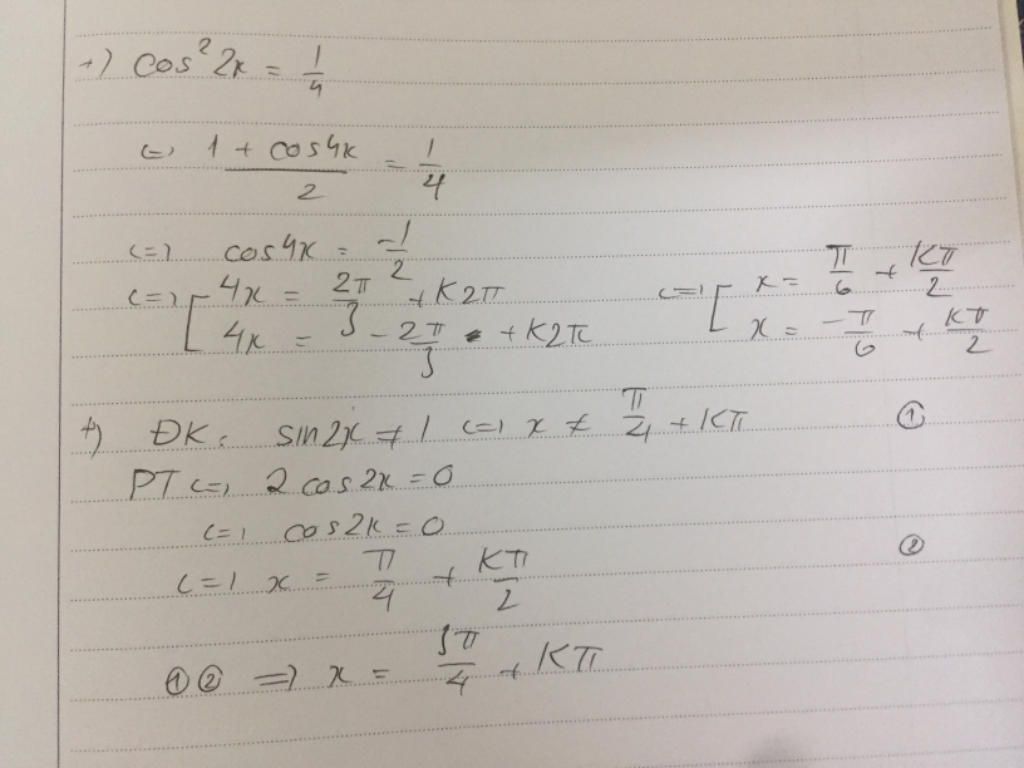 +) cos² 2x = 1/4
<=> (1 + cos4x)/2 = 1/4
<=> cos4x = -1/2
<=> [ 4x = 2π/3 + K2π
4x = -2π/3 + K2π
<=> [ x = π/6 + Kπ/2
x = -π/6 + Kπ/2
+) ĐK: sin2x ≠ 1 <=> x ≠ π/4 + Kπ ①
PT <=> 2 cos2x = 0
<=> cos2x = 0
<=> x = π/4 + Kπ/2 ②
①② => x = 3π/4 + Kπ